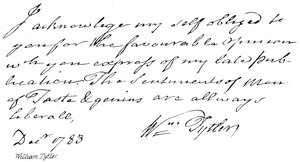 I acknowlege my self obliged to
you for the favourable Opinion
wh you express of my late pub-
lication. The Sentiments of Men
of Taste & genius are allways
liberale,
Wm Tytler
Decr 1783
William Tytler.